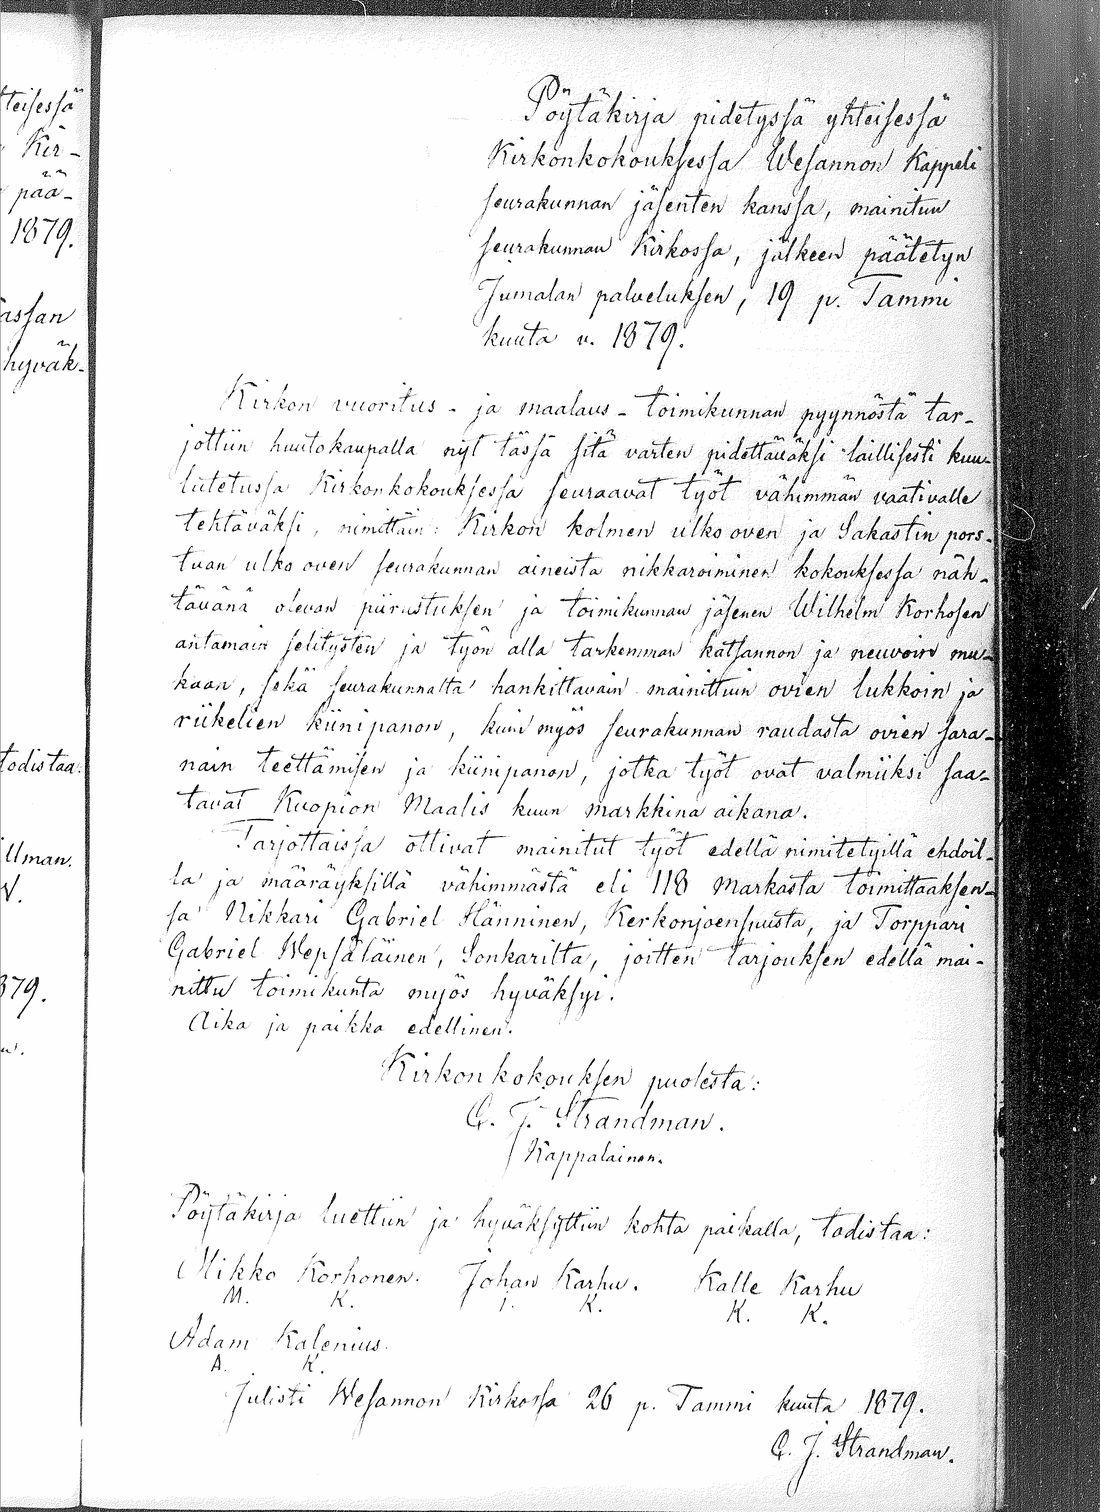 teisessä
Kir-
pää-
1879.
assan
hyväk-
todistaa:
llman.
879.
Pöytäkirja pidetyssä yhteisessä
Kirkonkokouksessa Wesannon Kappeli
seurakunnan jäsenten kanssa, mainitun
seurakunnan Kirkossa, jälkeen päätetyn
Jumalan palveluksen, 19 p. Tammi
kuuta v. 1879.
Kirkon vuoritus- ja maalaus-toimikunnan pyynnöstä tar-
jottiin huutokaupalla nyt tässä sitä varten pidettäväksi laillisesti kuu-
lutetussa Kirkonkokouksessa seuraavat työt vähimmän vaativalle
tehtäväksi, nimittäin: Kirkon kolmen ulko oven ja Sakastin pors-
tuan ulko oven seurakunnan aineista nikkaroiminen kokouksessa näh-
tävänä olevan piirustuksen ja toimikunnan jäsenen Wilhelm Korhosen
antamain selitysten ja työn alla tarkemman katsannon ja neuvoin mu-
kaan, sekä seurakunnalta hankittavain mainittuin ovien lukkoin ja
riikelien kiinipanon, kuin myös seurakunnan raudasta ovien sara-
nain teettämisen ja kiinipanon, jotka työt ovat valmiiksi saa-
tavat Kuopion Maalis kuun markkina aikana.
Tarjottaissa ottivat mainitut työt edellä nimitetyillä ehdoil-
la ja määräyksillä vähimmästä eli 118 Markasta toimittaaksen-
sa Nikkari Gabriel Hänninen, Kerkonjoensuusta, ja Torppari
Gabriel Wepsäläinen, Sonkarilta, joitten tarjouksen edellä mai-
nittu toimikunta myös hyväksyi.
Aika ja paikka edellinen.
Kirkonkokouksen puolesta:
C. J. Strandman.
Kappalainen.
Pöytäkirja luettiin ja hyväksyttiin kohta paikalla, todistaa:
Mikko Korhonen. Johan Karhu. Kalle Karhu
M. K. J. K. K. K.
Adam Kalenius.
A. K.
Julisti Wesannon Kirkossa 26 p. Tammi kuuta 1879.
C. J. Strandman.